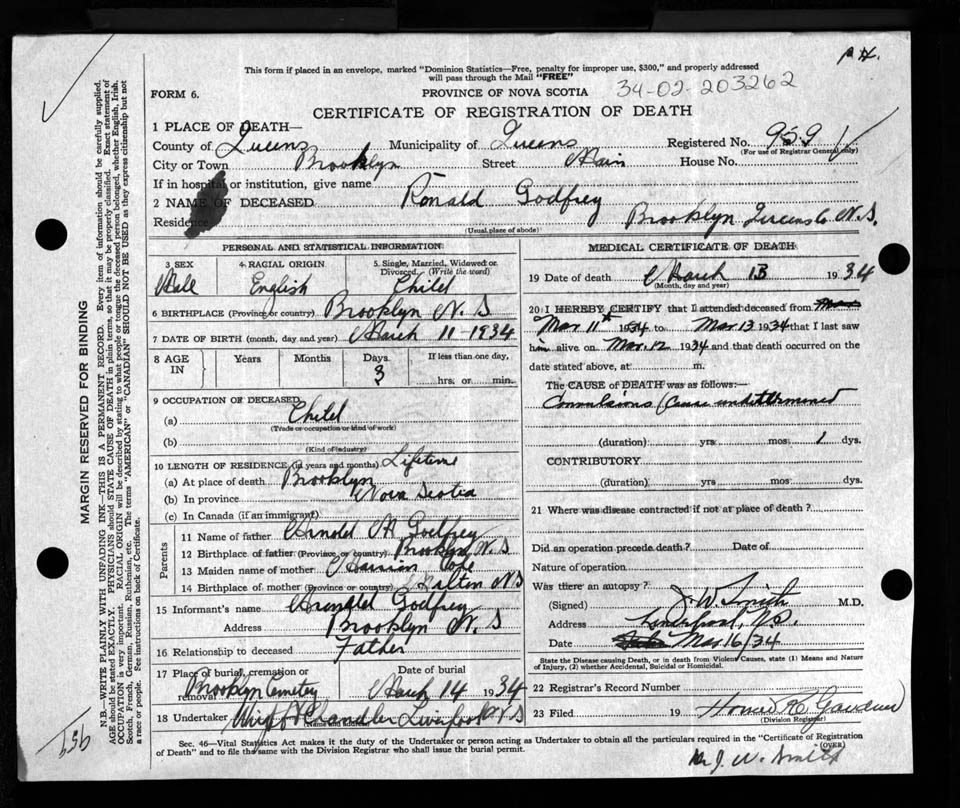 P.H.
This form if placed in an envelope, marked "Dominion Statistics—Free, penalty for improper use, $300," and properly addressed
will pass through the Mail "FREE"
FORM 6.
PROVINCE OF NOVA SCOTIA 34-02-203262
CERTIFICATE OF REGISTRATION OF DEATH
1 PLACE OF DEATH—
County of Queens Municipality of Queens Registered No. 959
(For use of Registrar General only)
City or Town Brooklyn Street Main House No.
If in hospital or institution, give name
2 NAME OF DECEASED Ronald Godfrey
Residence Brooklyn Queens Co. N.S.
(Usual place of abode)
PERSONAL AND STATISTICAL INFORMATION
3 SEX 4. RACIAL ORIGIN 5. Single, Married, Widowed or
Divorced. (Write the word)
Male English Child
6 BIRTHPLACE (Province or country) Brooklyn N. S
7 DATE OF BIRTH (month, day and year) March 11-1934
8 AGE IN Years Months Days 3 If less than one day,
hrs. or min.
9 OCCUPATION OF DECEASED
(a) Child
(Trade or occupation or kind of work)
(b)
(Kind of industry)
10 LENGTH OF RESIDENCE (in years and months) Lifetime
(a) At place of death Brooklyn
(b) In province Nova Scotia
(c) In Canada (if an immigrant)
Parents
11 Name of father Arnold Godfrey
12 Birthplace of father (Province or country) Brooklyn N. S
13 Maiden name of mother Pope
14 Birthplace of mother (Province or country) N S
15 Informant's name Godfrey
Address Brooklyn N. S
16 Relationship to deceased Father
17 Place of burial, cremation or removal Date of burial
Brooklyn Cemetery March 14 1934
18 Undertaker Chandler Liverpool N S
(Name and address)
MEDICAL CERTIFICATE OF DEATH
19 Date of death March 13 1934
(Month, day and year)
20 I HEREBY CERTIFY that I attended deceased from
Mar 11th 1934 to Mar. 13 1934 that I last saw
him alive on Mar. 12 1934 and that death occurred on the
date stated above, at m.
The CAUSE of DEATH was as follows:—
Convulsions (Cause undetermined
(duration) yrs mos 1 dys.
CONTRIBUTORY
(duration) yrs. mos. dys.
21 Where was disease contracted if not at place of death?
Did an operation precede death? Date of
Nature of operation
Was there an autopsy?
(Signed) J. W. Smith M.D.
Address Liverpool, N.S.
Date Mar 16/34
State the Disease causing Death, or in death from Violent Causes, state (1) Means and Nature
of Injury, (2) whether Accidental, Suicidal or Homicidal.
22 Registrar's Record Number
23 Filed 19
(Division Registrar)
Sec. 46—Vital Statistics Act makes it the duty of the Undertaker or person acting as Undertaker to obtain all the particulars required in the "Certificate of Registration
of Death" and to file the same with the Division Registrar who shall issue the burial permit.
(OVER)
Dr J. W. Smith
MARGIN RESERVED FOR BINDING
N.B.—WRITE PLAINLY WITH UNFADING INK—THIS IS A PERMANENT RECORD. Every item of information should be carefully supplied.
AGE should be stated EXACTLY. PHYSICIANS should STATE CAUSE OF DEATH in plain terms, so that it may be properly classified. Exact statement of
OCCUPATION is very important. RACIAL ORIGIN will be described by stating to what people or tongue the deceased person belonged, whether English, Irish,
Scotch, French, German, Russian, Ruthenian, etc. The terms "AMERICAN" or "CANADIAN" SHOULD NOT BE USED as they express citizenship but not
a race or people. See instructions on back of Certificate.
959